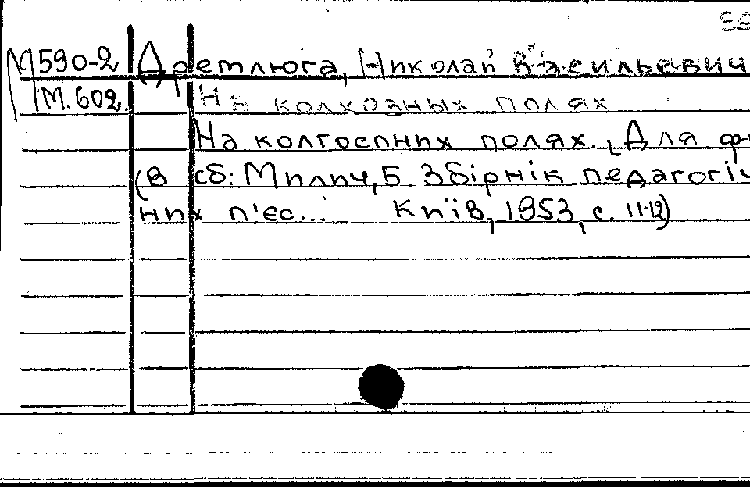 М590-2 Дремлюга, Николай Васильевич
М.602 На колхозных полях
На колгоспних полях. [Для ф
(в сб: Милич, Б. Збірнік педагогіч
них п'єс... Київ, 1953, с. 11-12)